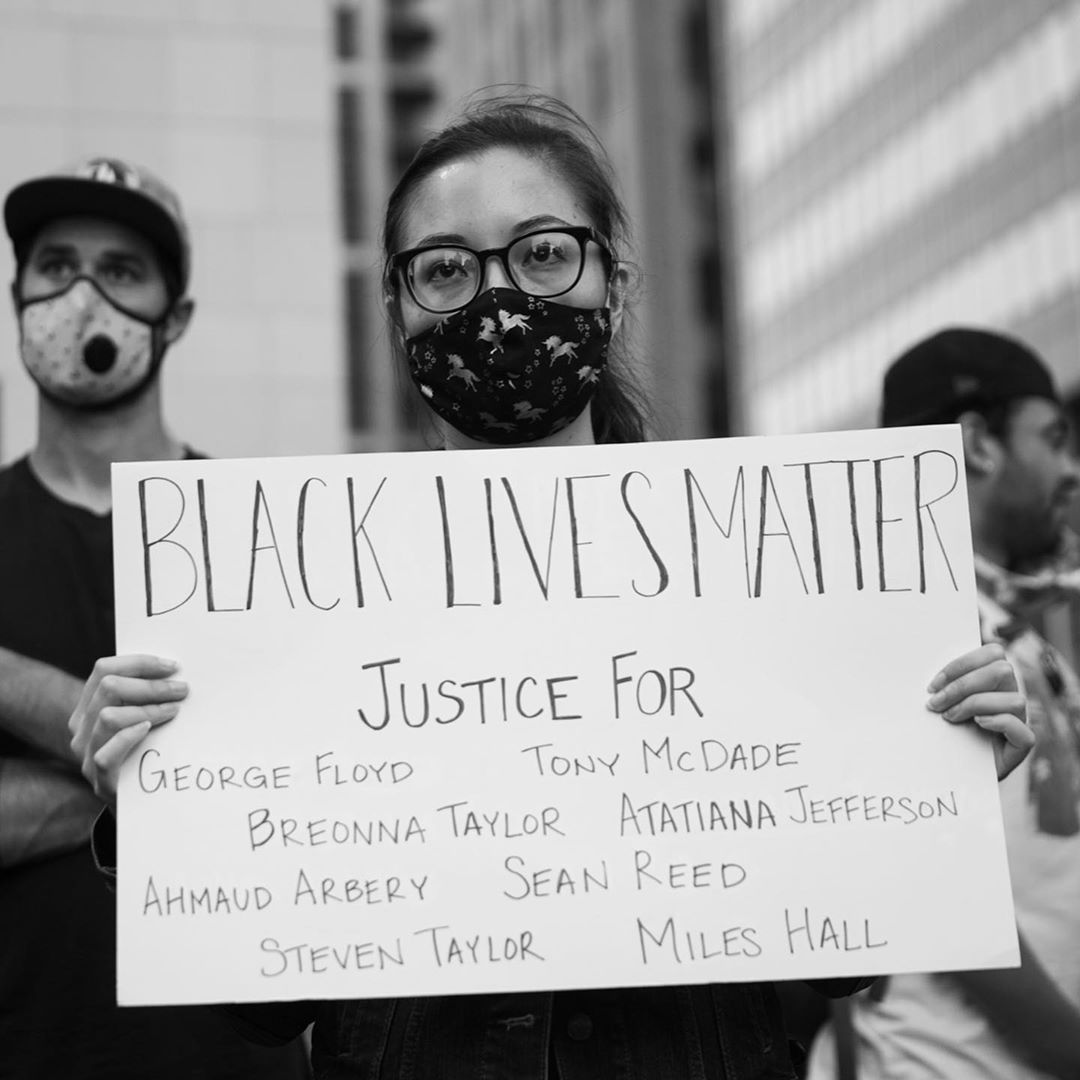 BLACK LIVES MATTER
JUSTICE FOR
GEORGE FLOYD TONY MCDADE
BREONNA TAYLOR ATATIANA JEFFERSON
AHMAUD ARBERY SEAN REED
STEVEN TAYLOR MILES HALL